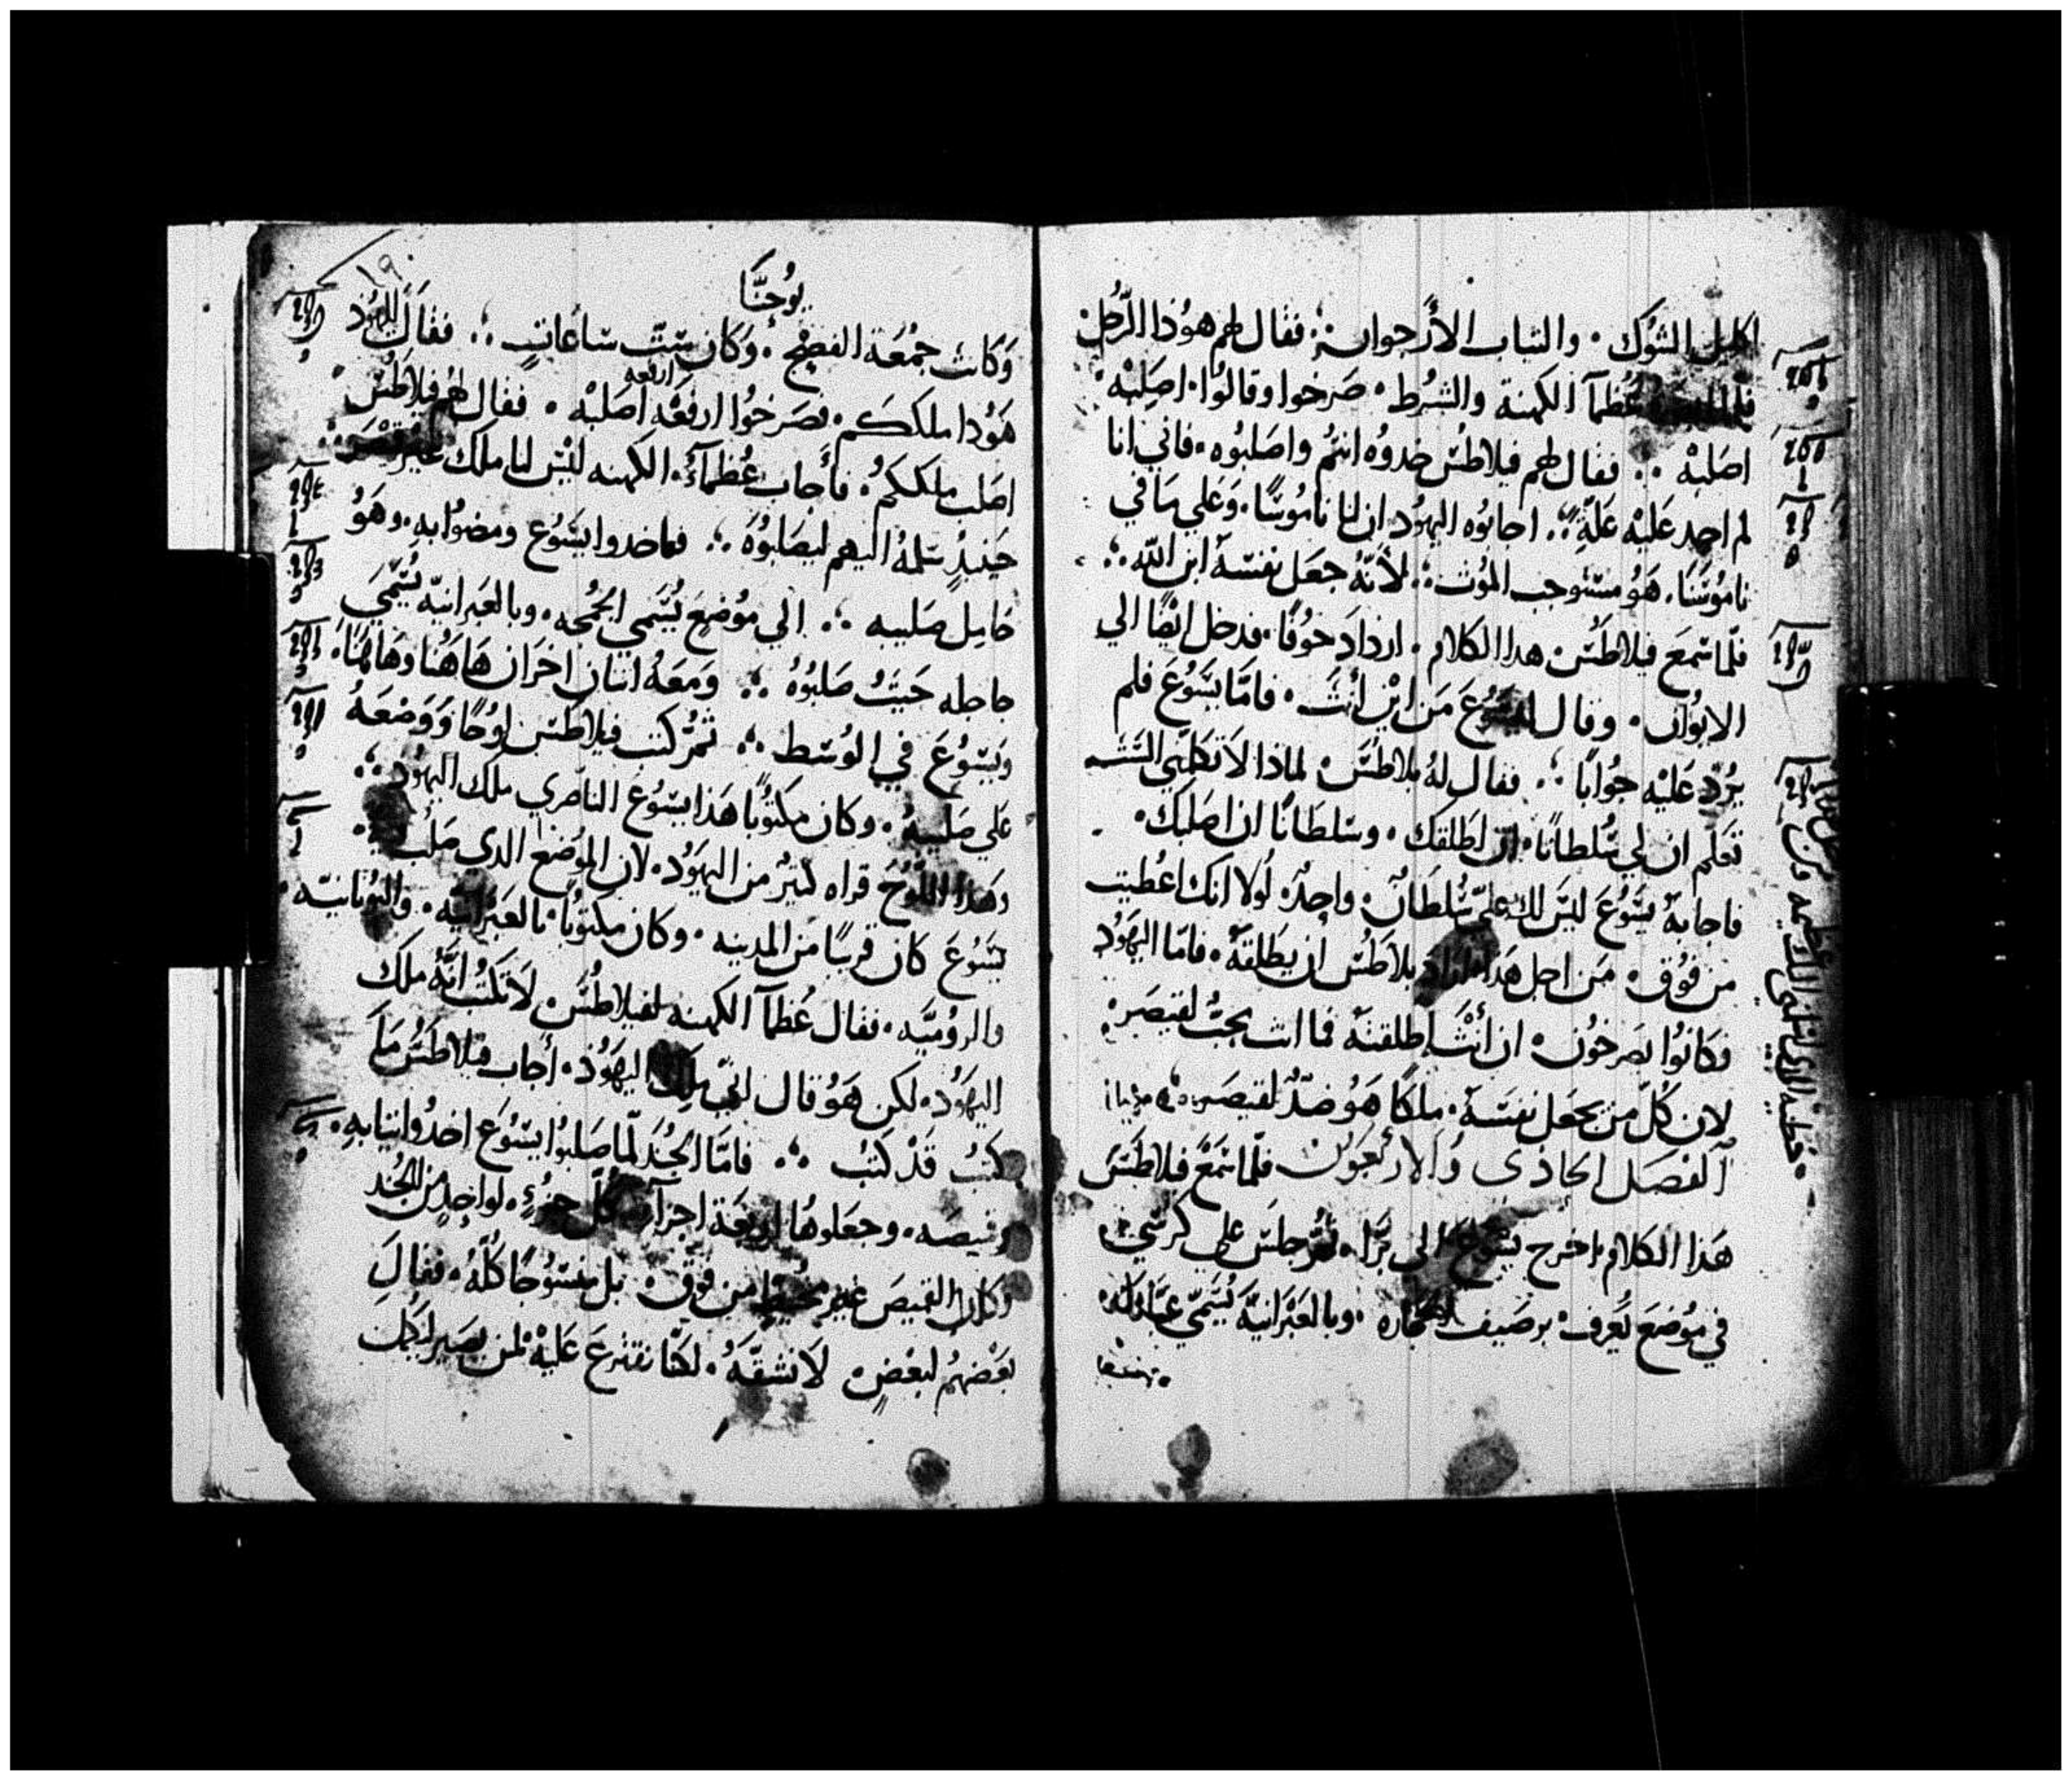 اكليل الشوك . والثياب الأرجوان ؛ فقال لهم هوذا الرجل
عُظمآ الكهنة والشرط . صرخوا وقالوا . اصلبه .
اصلبه ؛ فقال لهم فيلاطس خدوه انتم واصلبوه . فاني انا
لم اجد عليه علّةٍ ؛ اجابوه اليهود ان لنا ناموسًا . وعلي ما في
ناموسنا . هو مستوجب الموت ؛ لأنّه جعل نفسه ابن الله ؛
فلمّا سمع فيلاطس هدا الكلام . ازداد خوفًا . فدخل ايضًا الي
الابوان . وقال ليسوع من اين أنت . فامّا يسوع فلم
يردّ عليه جوابًا ؛ فقال له بلاطس لماذا لا تكلمني الست
تعلم ان لي سُلطانًا . ان اطلقك . وسلطانًا ان اصلبك .
فاجابه يسوع ليس لك عليّ سُلطانٌ . واحدٌ لولا انك اعُطيت
من فوق . من اجل هدا اراد بلاطس ان يطلقه . فامّا اليهود
فكانوا يصرخون . ان أنت اطلقته فما انت بحبّ لقيصر .
لان كُلّ من يجعل نفسه . ملكًا هو ضدٌّ لقيصر ؛
آلفصل الحاذى والأربعون فلمّا سمع فلاطس
هذا الكلام اخرج يسوع الى برّا . ثمّ جلس علي كرسي
في موضع يُعرف برصيف الحجاره . وبالعبرانيّة يُسمّي
يوحنّا
١٩
وكانت جمعة الفصح . وكان ستّ ساعاتٍ ؛ فقال لليهود
هودا ملككم . فصرخوا ارفعه ارفعه اصلبه . فقال لهم فيلاطس
اصلب ملككم . فأجاب عُظمآءُ الكهنه ليس لنا ملك غير قيصر ؛
حينيدٍ سلمهُ اليهم ليصلبوه ؛ فاخدوا يسوع ومضوا به . وهو
حامل صليبه ؛ الي موضع يُسمي الجمجمه . وبالعبرانيّه يُسمّي
جاجله حيث صلبوهُ ؛ ومعه اتنان اخران هاهنا وهاهنا .
ويسوع في الوسط ؛ ثمّ كتب فيلاطس لوحًا ووضعه
علي صليبه . وكان مكتوبًا هذا يسوع الناصري ملك اليهود ؛
وهدا اللوح قراه كتيرٌ من اليهود . لان الموضع الدى صلب
يسوع كان قريبًا من المدينه . وكان مكتوبًا . بالعبرانيّه . واليونانيّه .
والروميّه . فقال عُظمآ الكهنه لفيلاطس لا تكتب انّه ملك
اليهود . لكن هو قال انّي ملك اليهود . أجاب فيلاطس ما
كتبُ قد كتبُ ؛ فامّا الجُند لمّا صلبوا يسوع اخدوا تيابه .
وقميصه . وجعلوها اربعة اجزآء كلّ جزءٍ . لواحدٍ من الجُند
وكان القميص غير مخيط من فوق . بل منسوجًا كلّهُ . فقال
بعضهم لبعضٍ لا نشقّهُ . لكنّا نقترع عليه لمن يصير